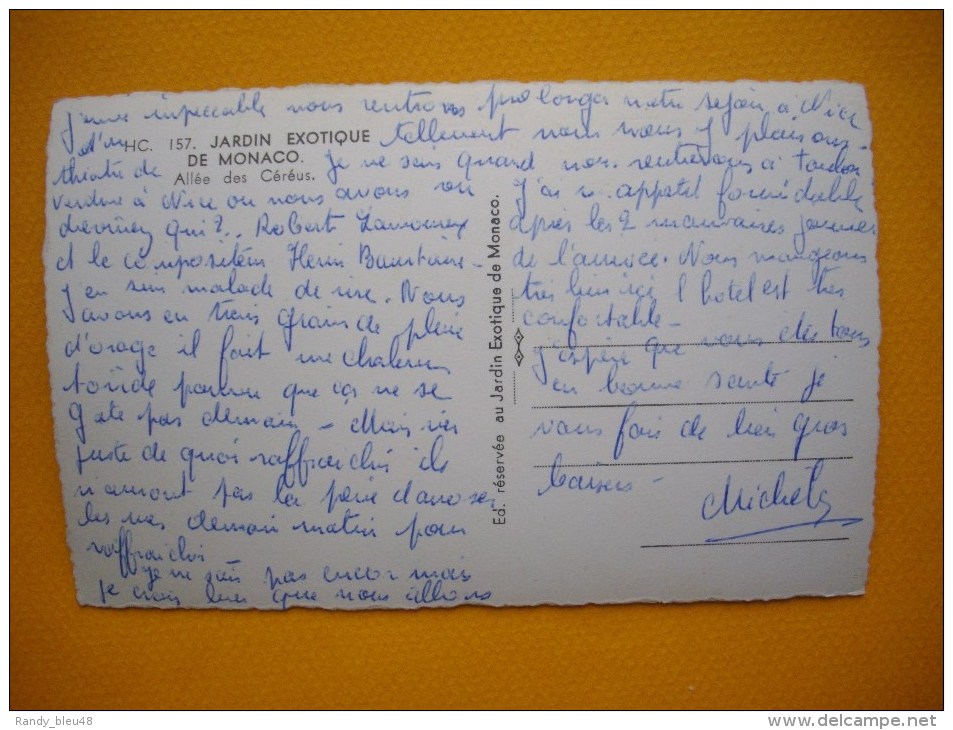 nous rentrons
d'un
HC. 157. JARDIN EXOTIQUE
DE MONACO.
Allée des Céréus.
théatre de
verdure à Nice ou nous avons vu
devinez qui?.. Robert Lamoureux
et le compositeur Henri
j'en suis malade de rire. Nous
avons eu trois grains de pluie
d'orage il fait une chaleur
torride pourvu que ça ne se
gate pas demain - Mais
juste de quoi raffraichi ils
n'auront pas la peine d'arroser
les rues demain matin pour
raffraichir
je ne sais pas encor mais
je crois bien que nous allons
prolonger notre sejour à Nice
tellement nous nous y plaisons.
Je ne sais quand nous rentrerons à Toulon
J'ai un appetit formidable
après les 2 mauvaises journées
de l'arrivée. Nous mangeons
très bien ici l'hotel est très
confortable -
j'espère que vous etes tous
en bonne santé je
vous fais de bien gros
baisers -
Michel
Ed. réservée au Jardin Exotique de Monaco.
Randy_bleu48
www.delcampe.net